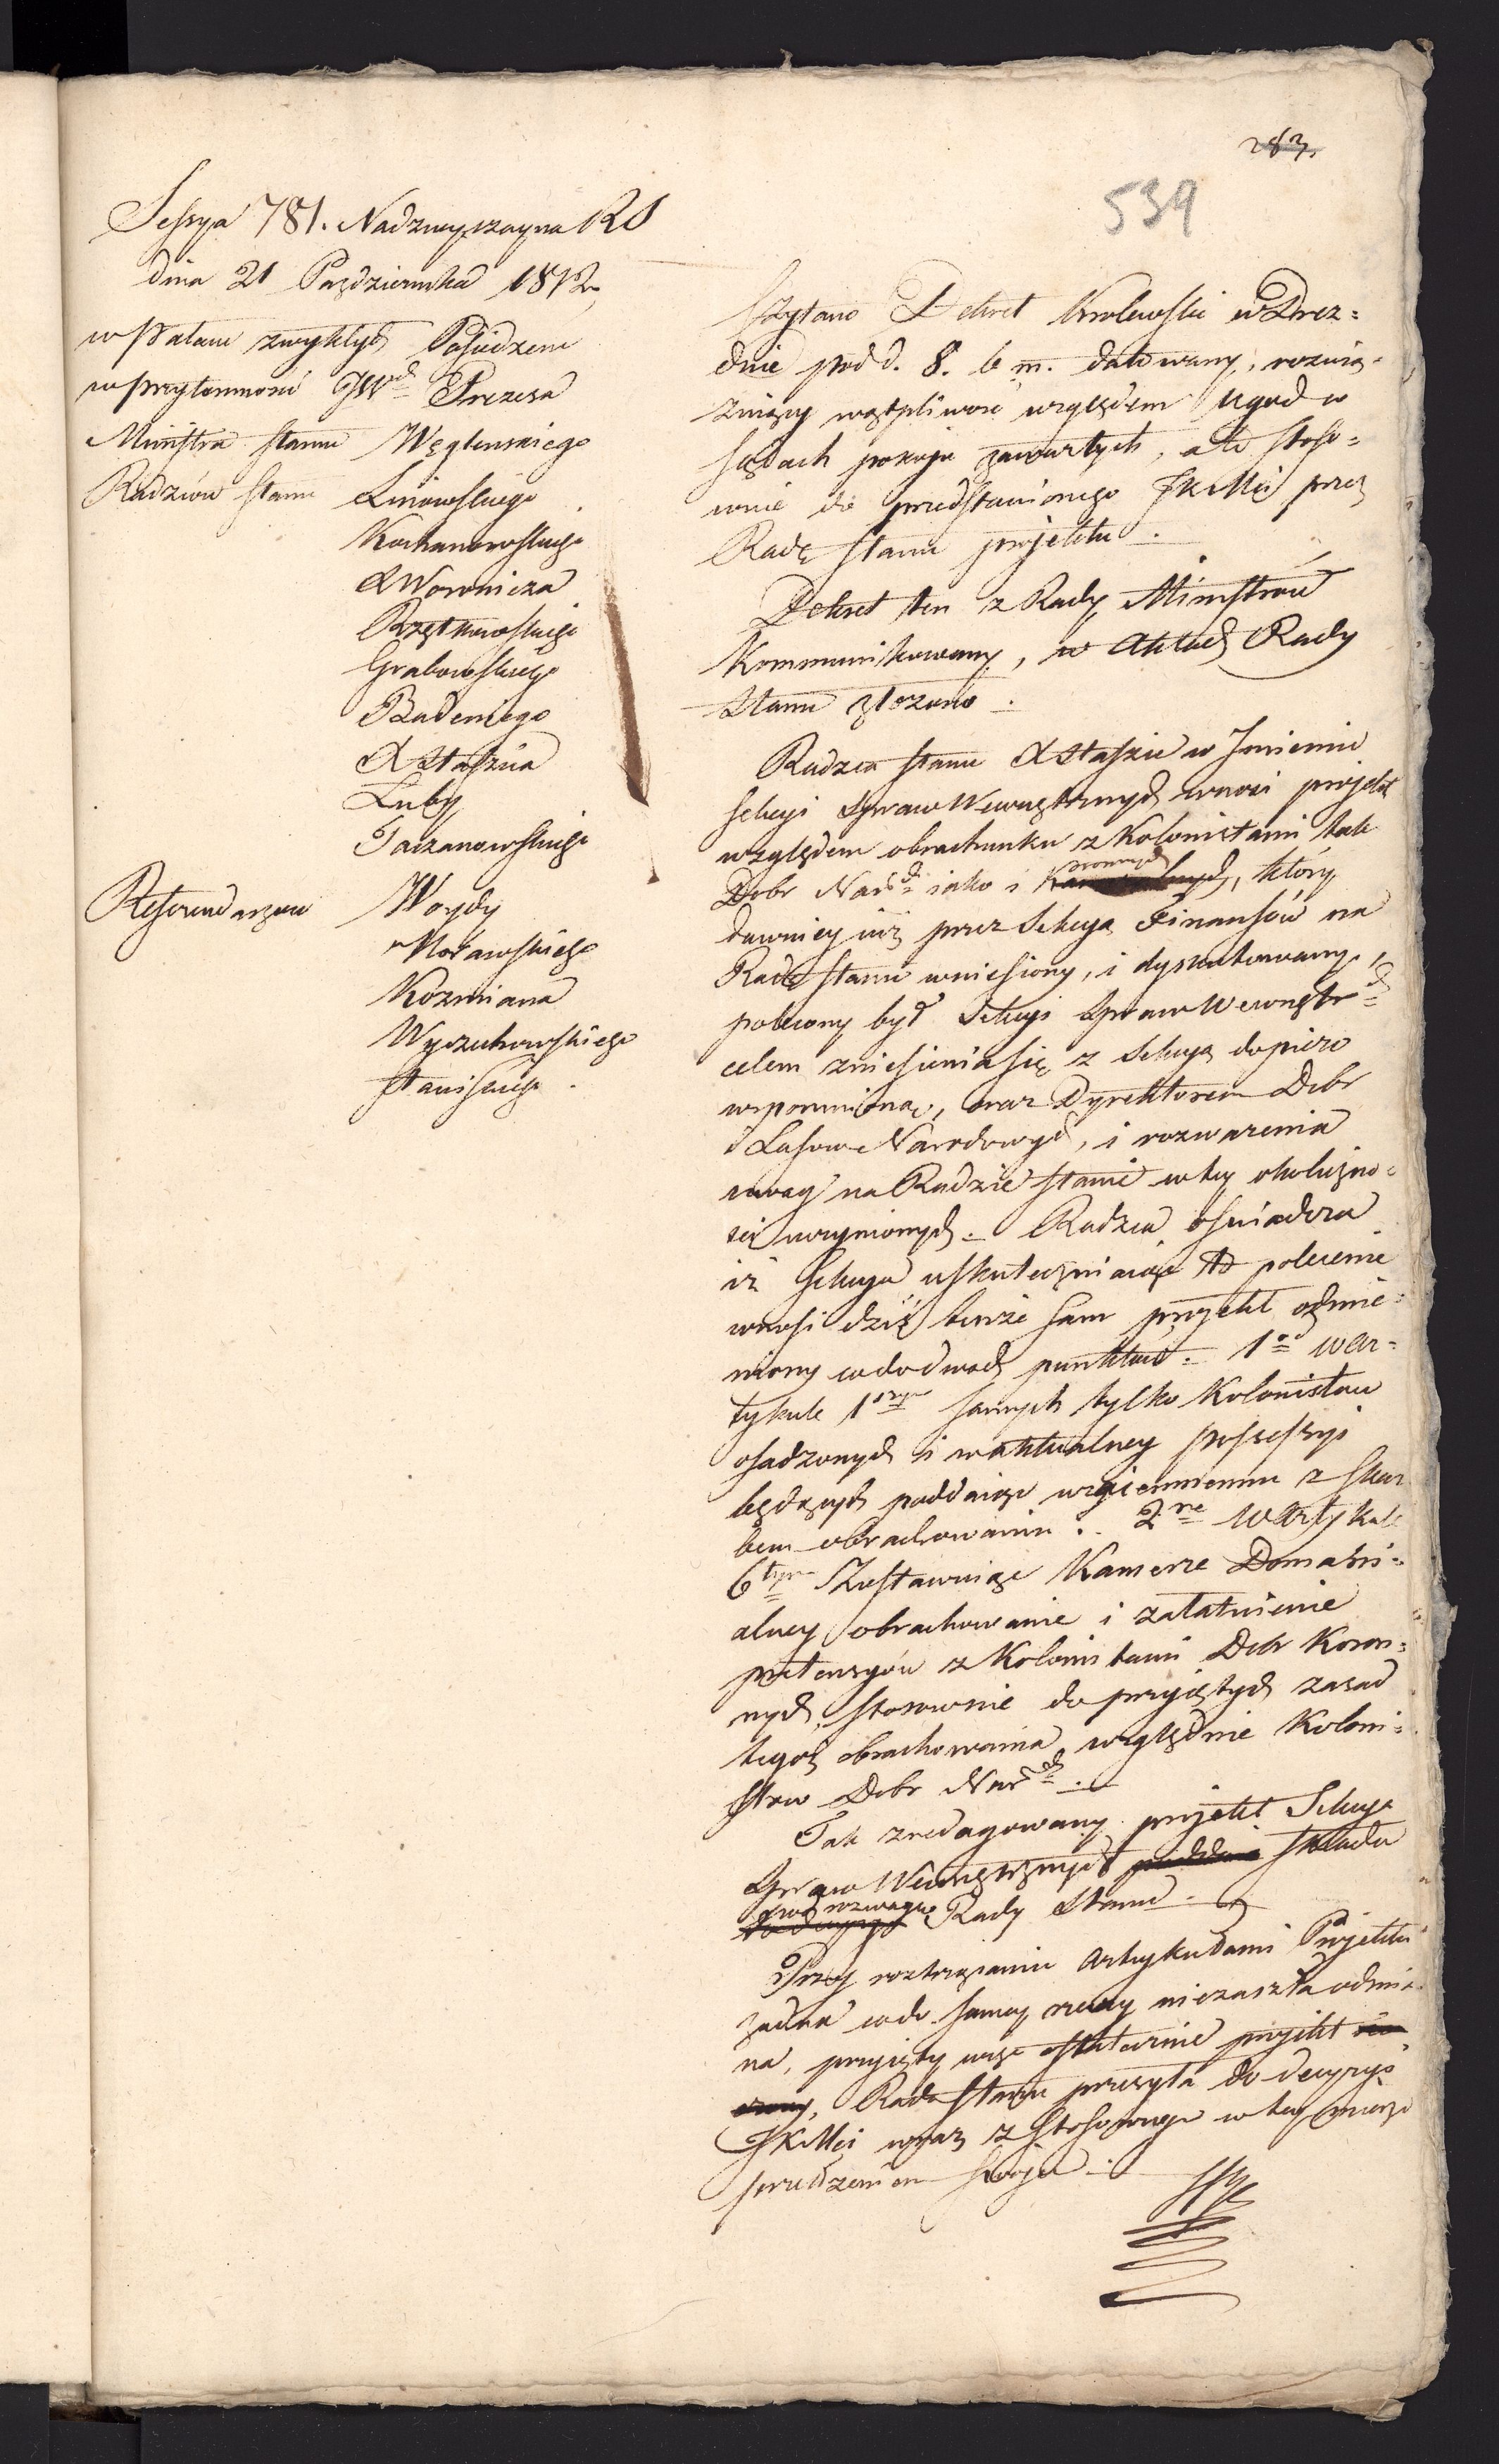 283.
539
Sessya 781. Nadzwyczayna RS
dnia 21 Października 1812
w Sałach zwykłych Posiedzeń
w przytomności JWch Prezesa
Ministra Stanu Węgleńskiego
Radzców Stanu Linowskiego
Kochanowskiego
X Woronicza
Rzętkowskiego
Grabowskiego
Badeniego
X Staszica
Łuby
Taczanowskiego
Referendarzów Woydy
Morawskiego
Kozmiana
Wyczechowskiego
Staniskiego
Czytano Dekret Krolewski w Drez=
dnie pod d. 8. b. m. datowany, rozwią=
zuiący wątpliwość względem Ugod w
Sądach pokoju zawartych, a to stoso=
wnie do przedstawionego JKMci przez
Radę Stanu projektu.
Dekret ten z Rady Ministrów
Kommunikowany, w Aktach Rady
Stanu złożono.
Radzca Stanu X Staszic w Imieniu
Sekcyi Spraw Wewnętrznych wnosi projekt
względem obrachunku z Kolonistami tak
Dobr Narch iako i Koronnych, który
dawniey iuż przez Sekcyą Finansów na
Radę Stanu wniesiony, i dyskutowany,
polecony był Sekcyi Spraw Wewnętrch
celem zniesienia się z Sekcyą dopiero
wspomnioną, oraz Dyrektorem Dobr
i Lasow Narodowych, i rozważenia
uwag na Radzie Stanu w tey okoliczno=
ści uczynionych. Radzca oświadcza
iż Sekcya uskuteczniaiąc to polecenie
wnosi dziś tenże sam projekt odmie=
niony co do dwoch punktów: 1o w ar=
tykule 1szym samych tylko Kolonistow
osadzonych i w aktualney possessyi
będących poddaiąc wzaiemnemu z Skar
bem obrachowaniu. 2re w Artykule
6tym Zostawuiąc Kamerze Domani=
alney obrachowanie i załatwienie
pretensyów z Kolonistami Dobr Koron=
nych, stosownie do przyiętych zasad
tegoż obrachowania względnie Koloni=
stow Dobr Narch.
Tak zredagowany projekt Sekcya
Spraw Wewnętrznych składa
pod rozwagę Rady Stanu.
Przy roztrząsaniu Artykułami Projektu
żadna co do samey rzeczy nie zaszła odmia=
na, przyięty więc ostatecznie projekt
Rada Stanu przesyła do decyzyi
JKMci wraz z stosownym w tey mierze
przedstawieniem swoim.